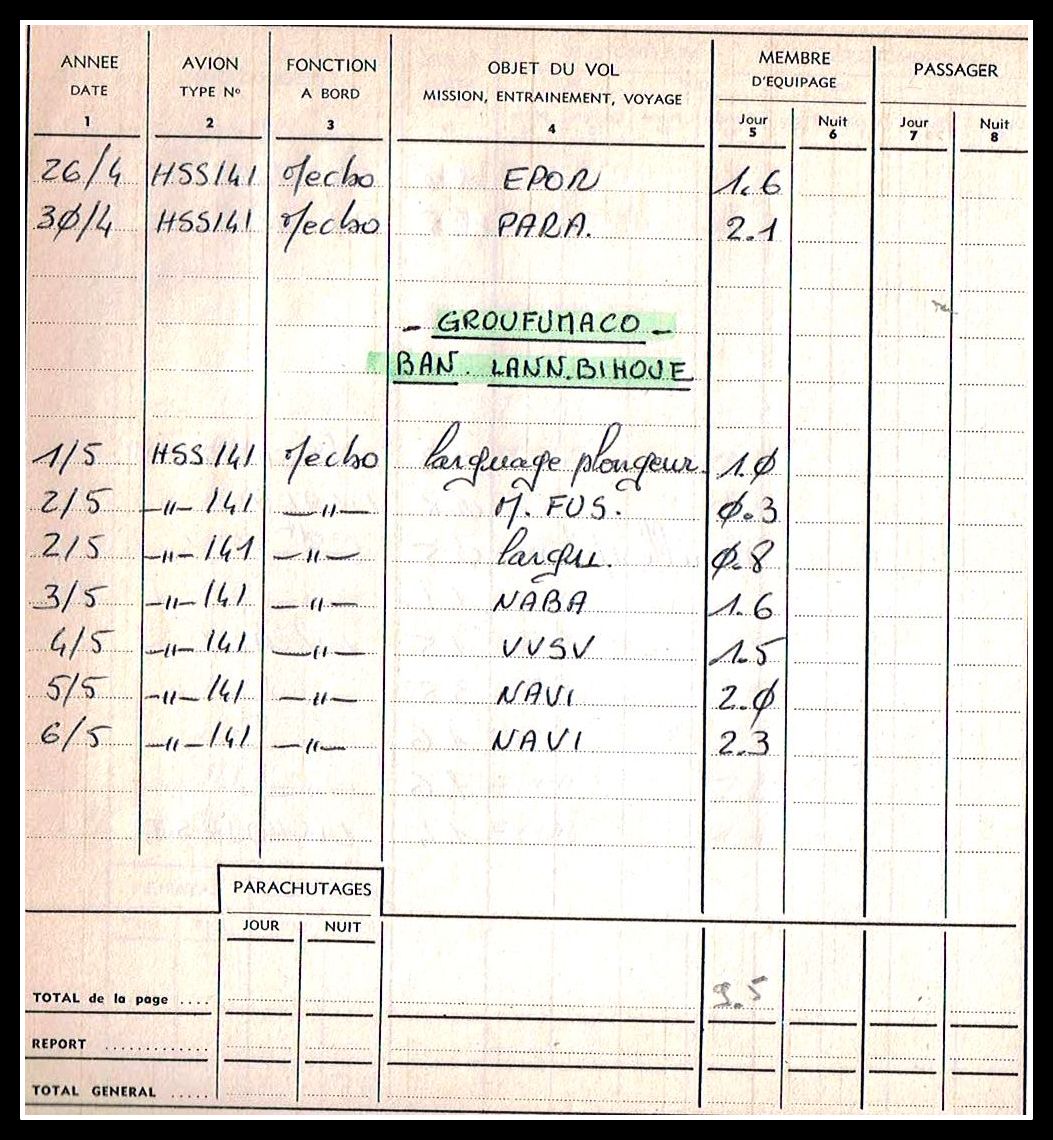 ANNEE AVION FONCTION OBJET DU VOL MEMBRE D'EQUIPAGE PASSAGER
DATE TYPE Nº A BORD MISSION, ENTRAINEMENT, VOYAGE Jour Nuit Jour Nuit
1 2 3 4 5 6 7 8
26/4 HSS141 Mecbo EPON 1.6
3Ø/4 HSS141 Mecbo PARA. 2.1
- GROUFUMACO -
BAN. LANN.BIHOUE
1/5 HSS141 Mecbo larguage plongeur. 1.Ø
2/5 -"- 141 -"- M. FUS. Ø.3
2/5 -"- 141 -"- largu. Ø.8
3/5 -"- 141 -"- NABA 1.6
4/5 -"- 141 -"- VVSV 1.5
5/5 -"- 141 -"- NAVI 2.Ø
6/5 -"- 141 -"- NAVI 2.3
PARACHUTAGES
JOUR NUIT
TOTAL de la page .... 9.5
REPORT ............
TOTAL GENERAL .....